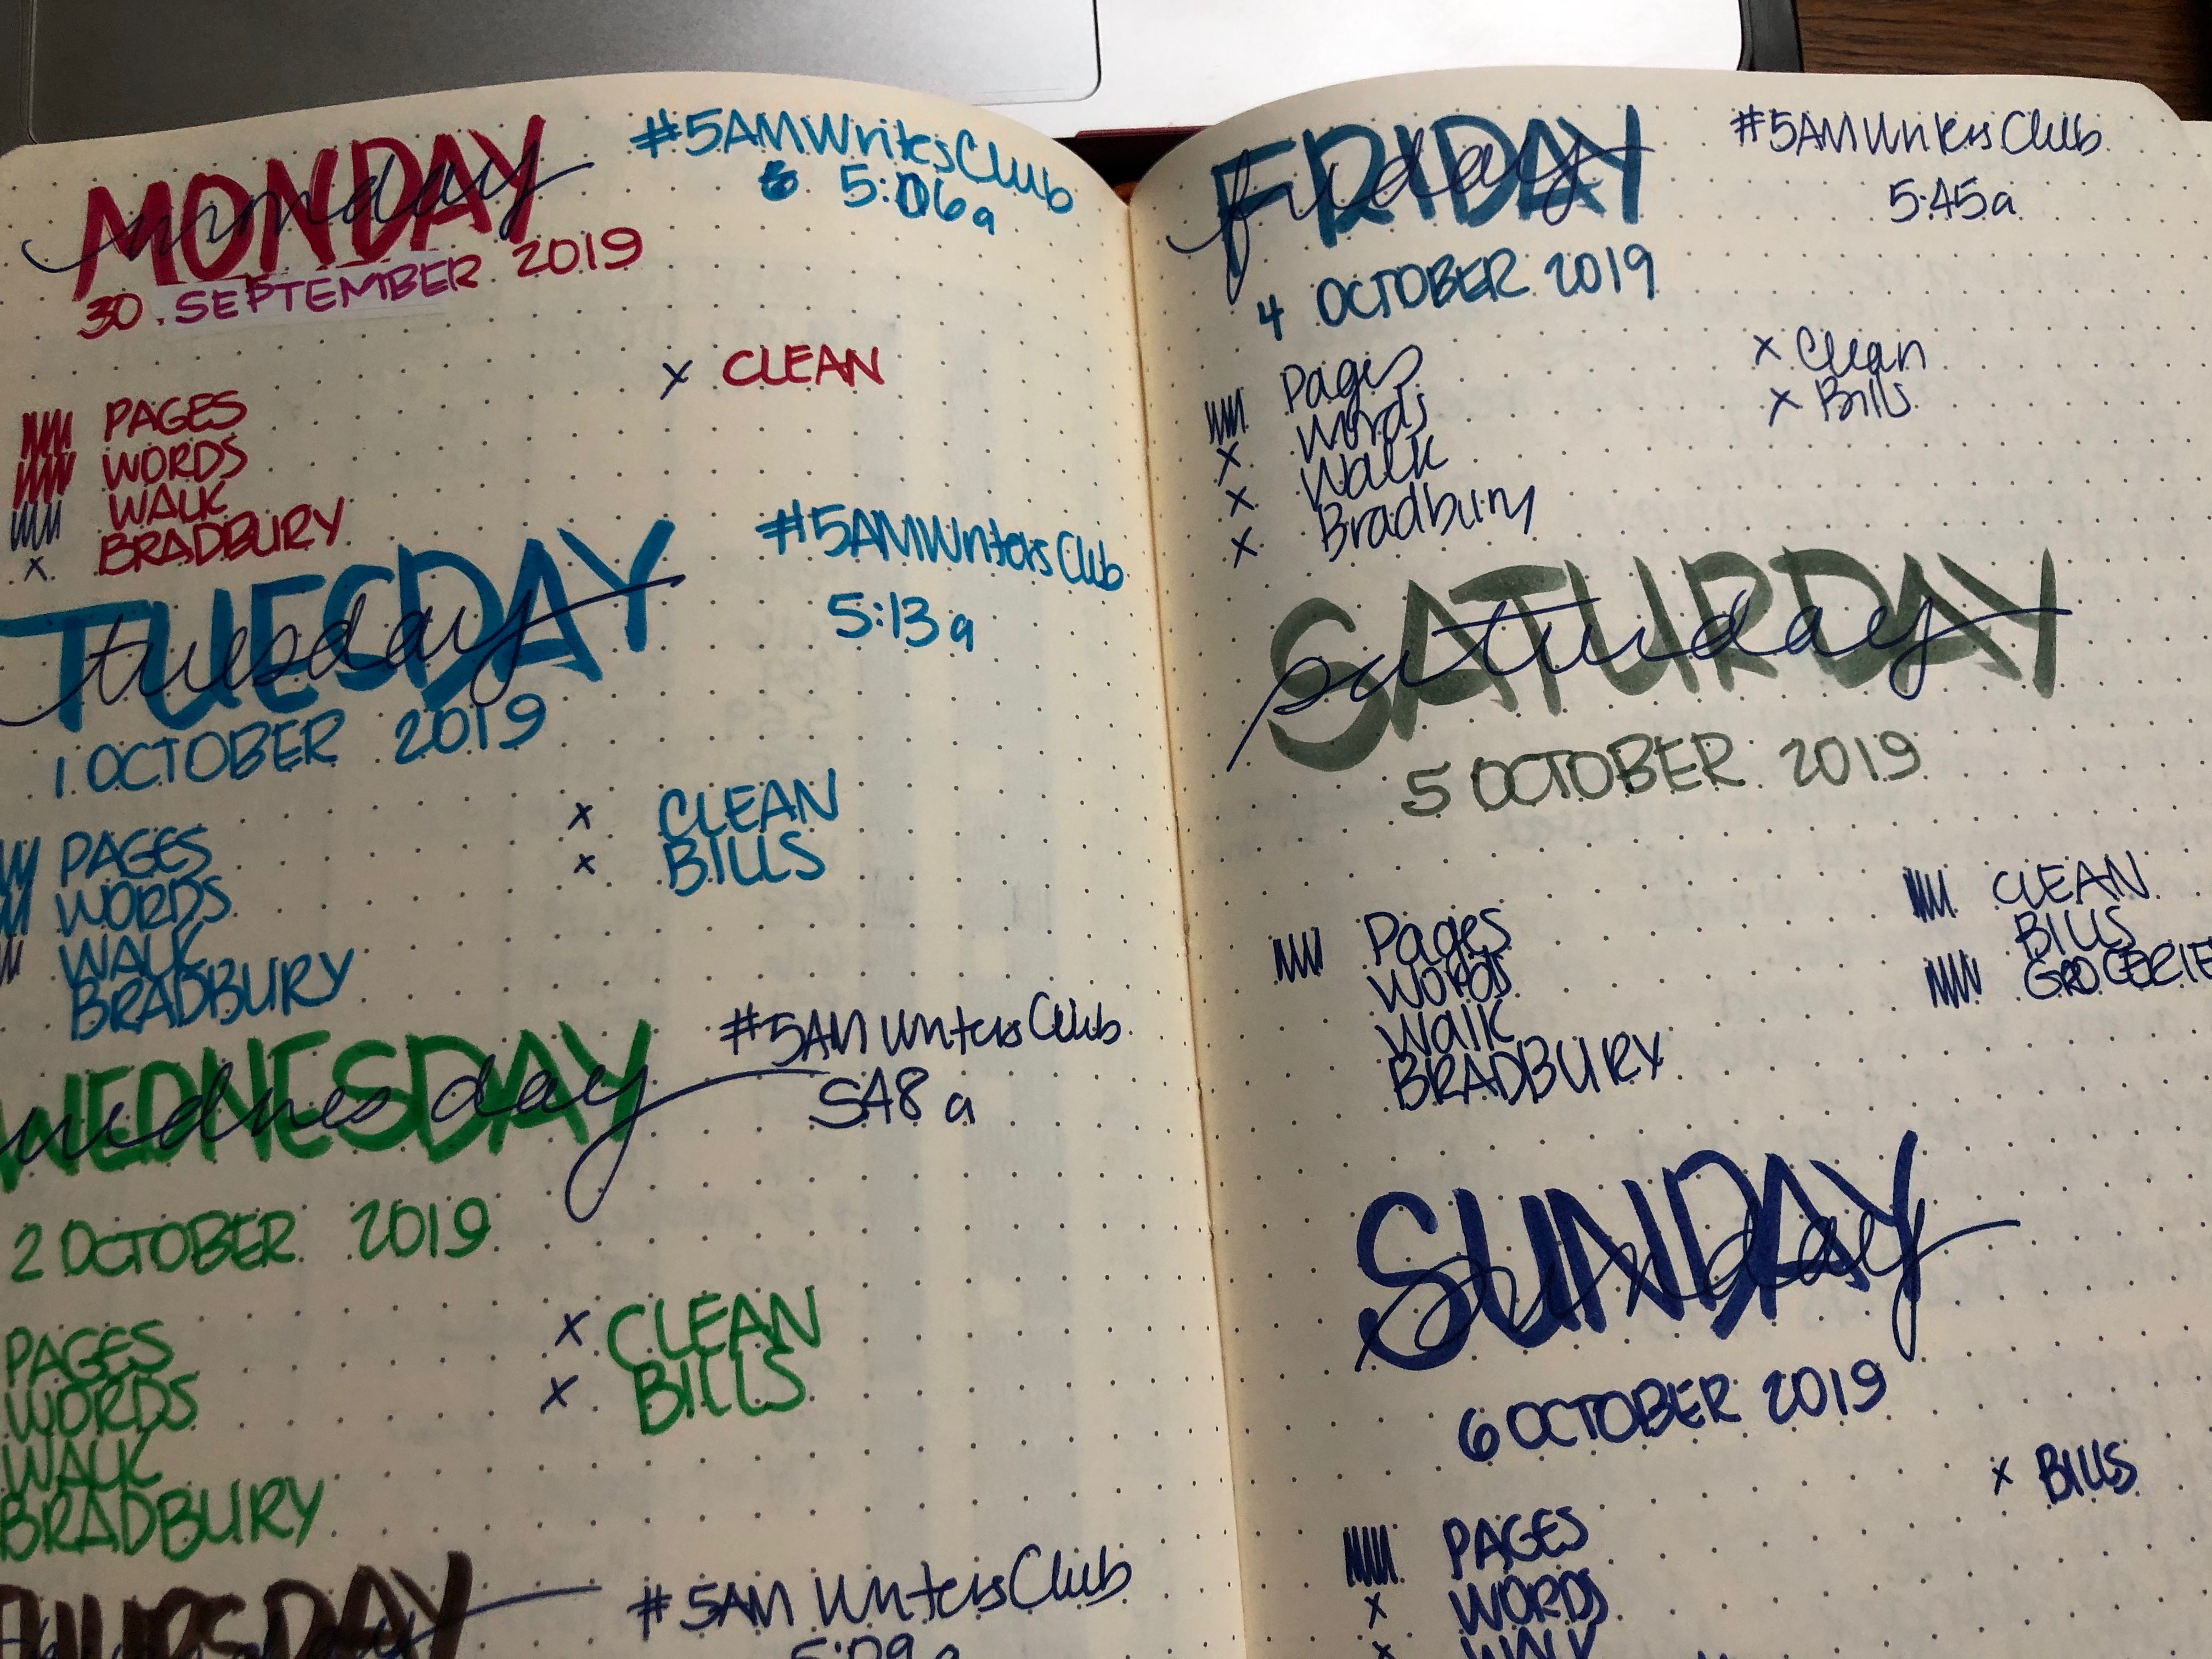 MONDAY
monday
#5AMWritesClub
5:06a
30 SEPTEMBER 2019
x CLEAN
PAGES
WORDS
WALK
x BRADBURY
TUESDAY
tuesday
#5AMWritersClub
5:13a
1 OCTOBER 2019
x CLEAN
x BILLS
PAGES
WORDS
WALK
BRADBURY
WEDNESDAY
wednesday
#5AMWritersClub
548 a
2 OCTOBER 2019
x CLEAN
x BILLS
PAGES
WORDS
WALK
BRADBURY
THURSDAY
#5AMWritersClub
5:09a
FRIDAY
friday
#5AMWritersClub
5:45a
4 OCTOBER 2019
x Clean
x Bills
Pages
x Words
x Walk
x Bradbury
SATURDAY
saturday
5 OCTOBER 2019
CLEAN
BILLS
GROCERIE
Pages
Words
Walk
BRADBURY
SUNDAY
sunday
6 OCTOBER 2019
x BILLS
PAGES
x WORDS
x WALK